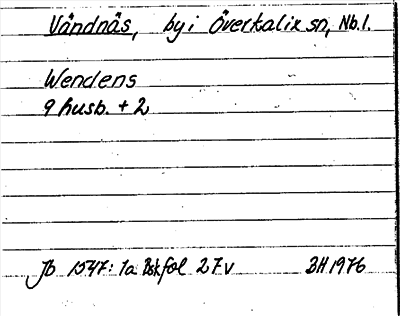 Vändnäs, by i Överkalix sn, Nb.l.
Wendens
9 husb. + 2
Jb 1547: 1a Bskfol 27v BH 1976